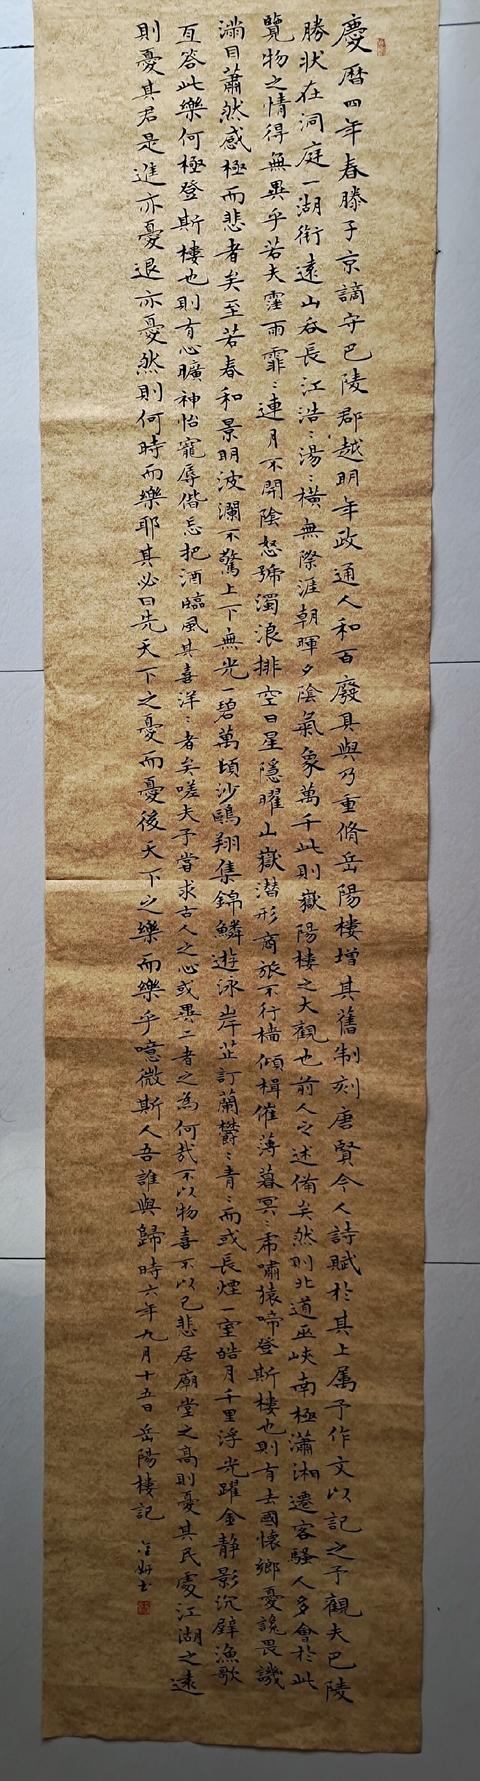 慶曆四年春滕子京謫守巴陵郡越明年政通人和百廢具興乃重脩岳陽樓增其舊制刻唐賢今人詩賦於其上属予作文以記之予觀夫巴陵
勝状在洞庭一湖銜遠山吞長江浩:湯:橫無際涯朝暉夕陰氣象萬千此則嶽陽樓之大觀也前人之述備矣然則北道巫峽南極瀟湘遷客騷人多會於此
覽物之情得無異乎若夫霪雨霏:連月不開陰怒號濁浪排空日星隱曜山嶽潜形商旅不行檣傾楫催薄暮冥:帍嘯猿啼登斯樓也則有去國懷鄉憂讒畏譏
滿目蕭然感極而悲者矣至若春和景明波瀾不驚上下無光一碧萬頃沙鷗翔集錦鱗遊泳岸芷訂蘭欝:青:而或長煙一室皓月千里浮光躍金静影沉璧漁歌
互答此樂何極登斯樓也則有心曠神怡寵辱偕忘把酒臨風其喜洋:者矣嗟夫予嘗求古人之心或異二者之為何哉不以物喜不以己悲居廟堂之高則憂其民處江湖之遠
則憂其君是進亦憂退亦憂然則何時而樂耶其必曰先天下之憂而憂後天下之樂而樂乎噫微斯人吾誰與歸時六年九月十五日岳陽樓記